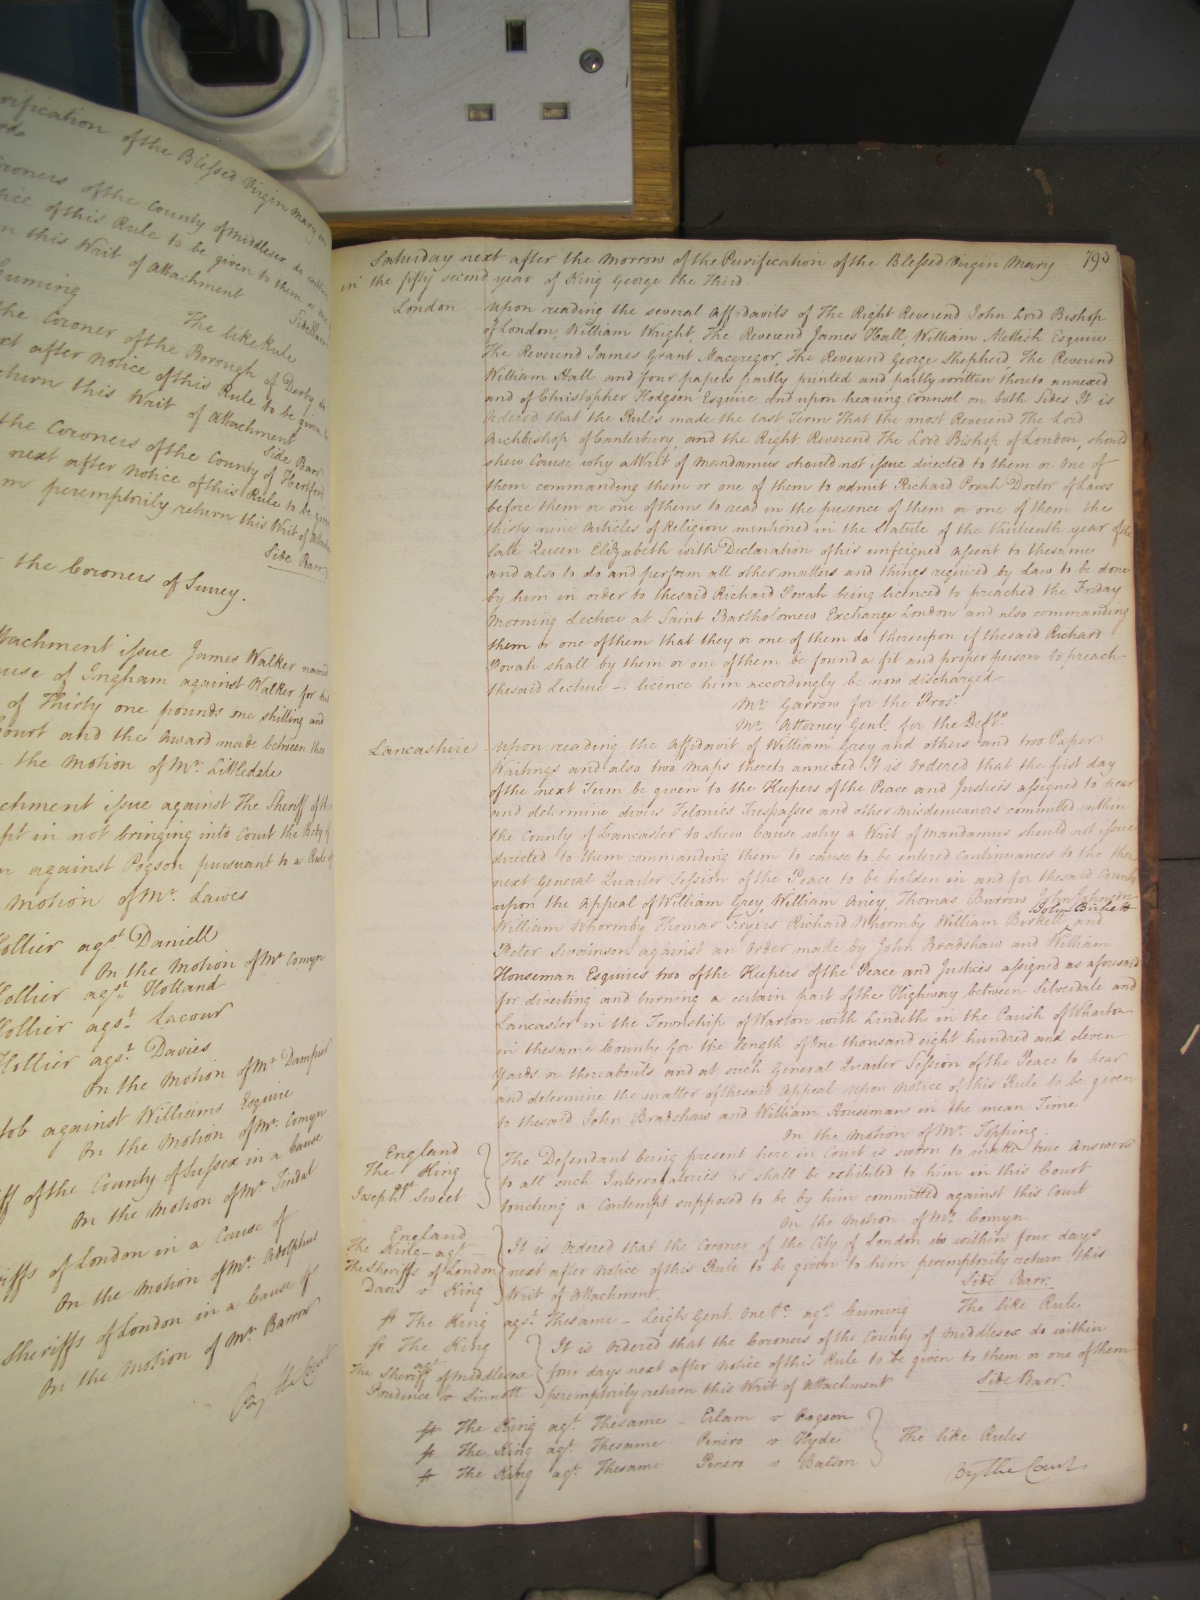 rification of the Blessed Virgin Mary in
ords
Coroners of the County of Middlesex do within
notice of this Rule to be given to them or
n this Writ of Attachment
Side Barr
Cuming The like Rule
the Coroner of the Borough of Derby do
ext after Notice of this Rule to be given to
return this Writ of Attachment
Side Barr
the Coroners of the County of Hertford
next after Notice of this Rule to be given
m peremptorily return this Writ of Attachment
Side Barr
the Coroners of Surrey.
ttachment issue James Walker named
ause of Ingham against Walker for
of Thirty one pounds one shilling and
Court and the Award made between the
the Motion of Mr. Littledale
chment issue against The Sheriff of the
pt in not bringing into Court the Body of
n against Pogson pursuant to a Rule
Motion of Mr. Lawes
Hollier agst. Daniell
On the Motion of Mr Comyn
Hollier agst. Holland
Hollier agst. Lacour
Hollier agst. Davies
On the Motion of Mr Dampier
Job against Williams Esquire
On the Motion of Mr. Comyn
iff of the County of Sussex in a Cause
On the Motion of Mr Tindal
riffs of London in a Cause of
On the Motion of Mr. Adolphus
Sheriffs of London in a Cause of
On the Motion of Mr. Barrow
By the Court
Saturday next after the Morrow of the Purification of the Blessed Virgin Mary 793
in the fifty second year of King George the Third.
London Upon reading the several Affidavits of The Right Reverend John Lord Bishop
of London, William Wright, The Reverend James Hall, William Mellish Esquire
The Reverend James Grant Macgregor, The Reverend George Shepherd, The Reverend
William Hall and four papers partly printed and partly written thereto annexed
and of Christopher Hodgson Esquire And upon hearing Counsel on both Sides It is
Ordered that the Rules made the last Term That the most Reverend The Lord
Archbishop of Canterbury, and the Right Reverend The Lord Bishop of London, should
shew Cause why a Writ of Mandamus should not issue directed to them or One of
them commanding them or one of them to admit Richard Povah Doctor of Laws
before them or one of them to read in the presence of them or one of them the
thirty nine Articles of Religion mentioned in the Statute of the thirteenth year of the
late Queen Elizabeth with Declaration of his unfeigned assent to thesame
and also to do and perform all other matters and things required by Law to be done
by him in order to thesaid Richard Povah being licenced to preached the Friday
Morning Lecture at Saint Bartholomew Exchange London and also commanding
them or one of them that they or one of them do thereupon if thesaid Richard
Povah shall by them or one of them be found a fit and proper person to preach
thesaid Lecture – licence him accordingly be now discharged
Mr. Garrow for the Pros.
Mr. Attorney Genl. for the Defts.
Lancashire Upon reading the Affidavit of William Grey and others and two Paper
Writings and also two Maps thereto annexed It is Ordered that the first day
of the next Term be given to the Keepers of the Peace and Justices assigned to hear
and determine divers Felonies Trespasses and other misdemeanors committed within
the County of Lancaster to shew Cause why a Writ of Mandamus should not issue
directed to them commanding them to cause to be entered Continuances to the then
next General Quarter Session of the Peace to be holden in and for thesaid County
upon the Appeal of William Grey, William Airey, Thomas Burrow John Johnson
William Whormby Thomas Fryers Richard Whormby William Birkett John Birkett and
Peter Swainson against an Order made by John Bradshaw and William
Houseman Esquires two of the Keepers of the Peace and Justices assigned as aforesaid
for diverting and turning a certain part of the Highway between Silverdale and
Lancaster in the Township of Warton with Lindeth in the Parish of Warton
in thesame County for the length of One thousand eight hundred and eleven
Yards or thereabouts and at such General Quarter Session of the Peace to hear
and determine the matter of thesaid Appeal upon Notice of this Rule to be given
to thesaid John Bradshaw and William Houseman in the mean Time
On the Motion of Mr. Topping.
England
The King
agt
Joseph Sweet
The Defendant being present here in Court is sworn to make true Answers
to all such Interrogatories as shall be exhibited to him in this Court
touching a Contempt supposed to be by him committed against this Court
On the Motion of Mr. Comyn
England
The King agt
The Sheriffs of London
Davis v King
It is Ordered that the Coroner of the City of London do within four days
next after Notice of this Rule to be given to him peremptorily return this
Writ of Attachment. Side Barr.
st The King agst. Thesame – Leigh Gent. One &c. agst. Cuming The like Rule
st The King
agt
The Sheriff of Middlesex
Prudence v Sinnott
It is Ordered that the Coroners of the County of Middlesex do within
four days next after Notice of this Rule to be given to them or one of them
peremptorily return this Writ of Attachment Side Barr.
st The King agt. Thesame – Eilam v Pogson
st The King agt. Thesame Pinero v Hyde The like Rules
st The King agt. Thesame Pinero v Batson
By the Court